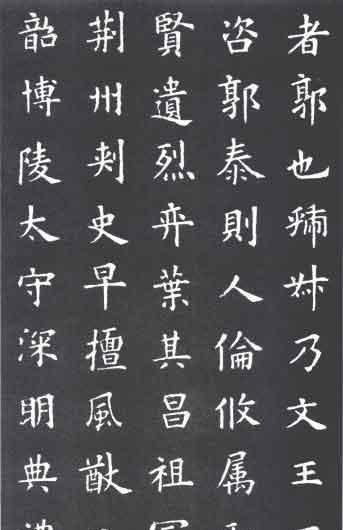 者郭也虢叔乃文王
咨郭泰則人倫攸属
賢遺烈弈葉其昌祖
荆州刾史早擅風猷
韶博陵太守深明典